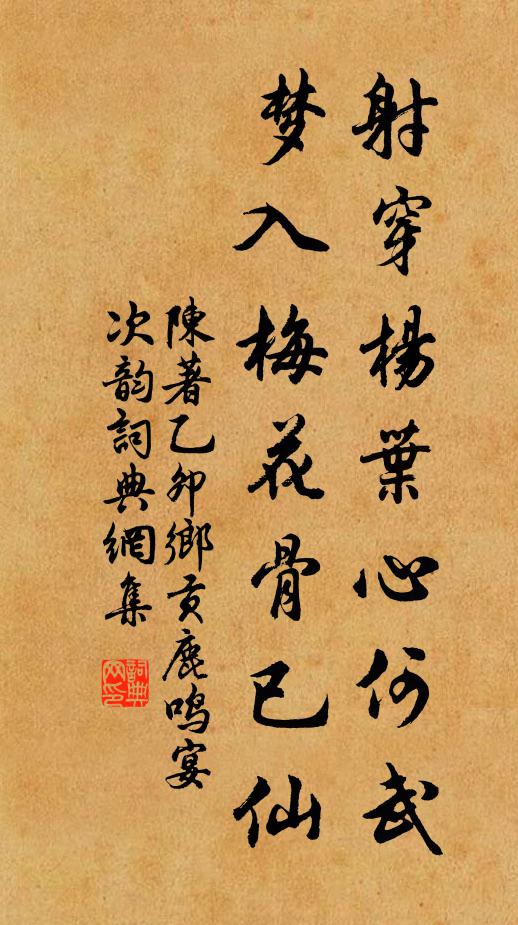 射穿楊葉心何武
梦入梅花骨已仙
陳著乙卯鄉贡鹿鸣宴
次韵詞典網集
詞典网印